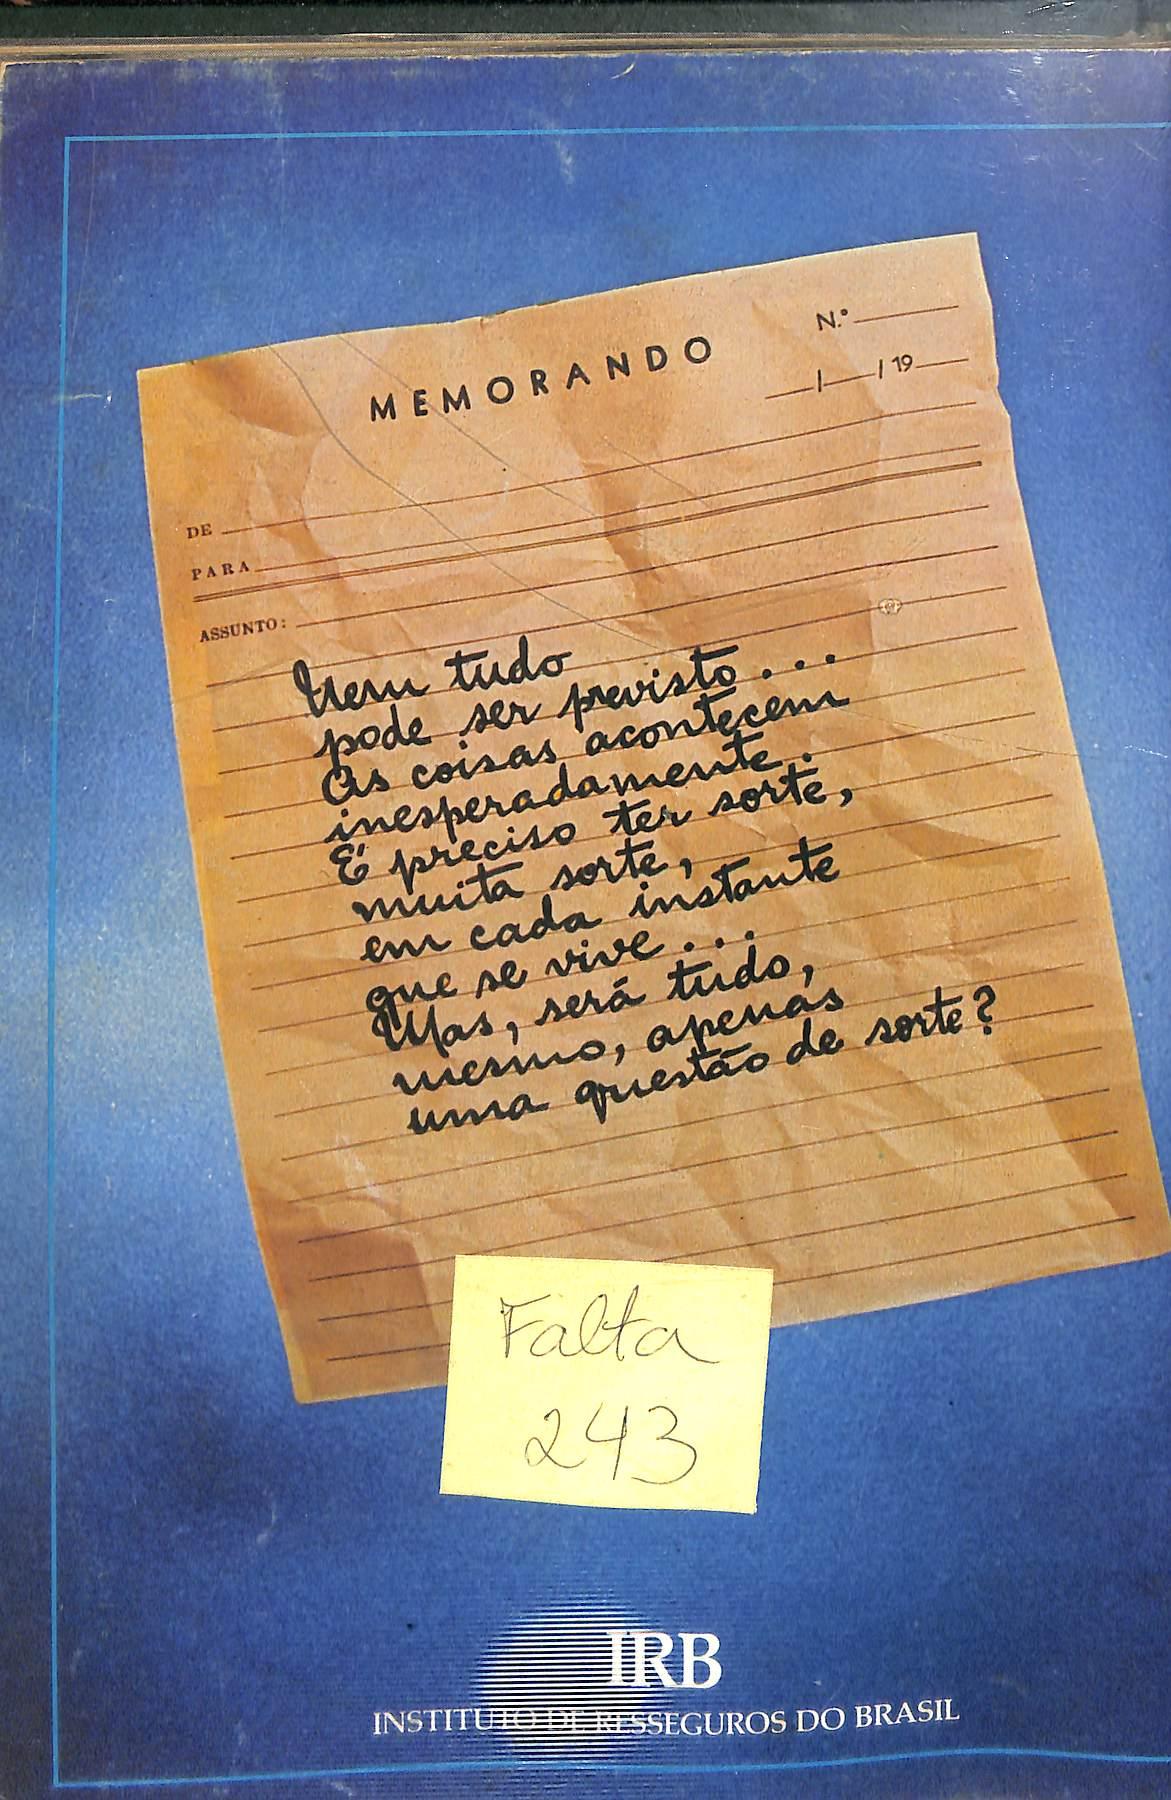 N.º
MEMORANDO
/ / 19
DE
PARA
ASSUNTO:
Nem tudo
pode ser previsto...
As coisas acontecem
inesperadamente.
É preciso ter sorte,
muita sorte,
em cada instante
que se vive...
Mas, será tudo,
mesmo, apenas
uma questão de sorte?
Falta
243
IRB
INSTITUTO DE RESSEGUROS DO BRASIL